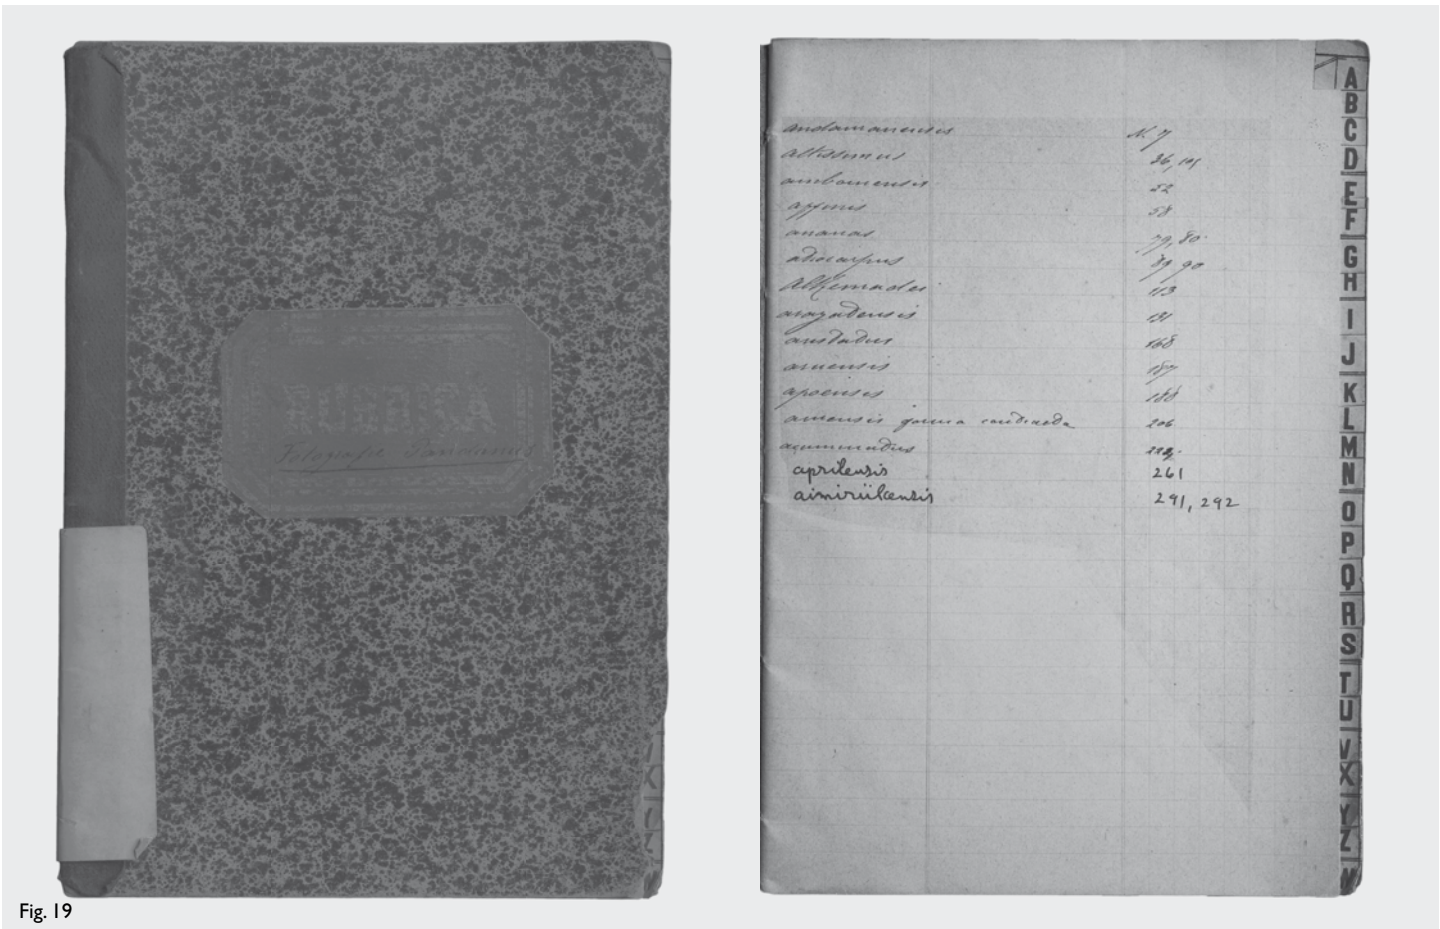 RUBRICA
Fotografie Pandanus
andamanensis N. 7
altissimus 26, 101
amboinensis 52
affinis 58
ananas 79, 80
adiocarpus 89 90
Alkemadei 113
131
168
aruensis 187
apoensis 188
aruensis forma contracta 206
acuminatus
aprilensis 261
aimiriikensis 291, 292
A
B
C
D
E
F
G
H
I
J
K
L
M
N
O
P
Q
R
S
T
U
V
X
Y
Z
Fig. 19